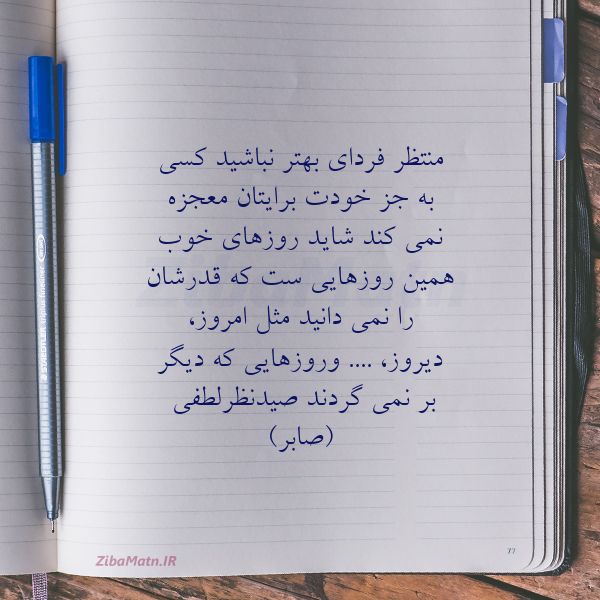 منتظر فردای بهتر نباشید کسی
به جز خودت برایتان معجزه
نمی کند شاید روزهای خوب
همین روزهایی ست که قدرشان
را نمی دانید مثل امروز،
دیروز، .... وروزهایی که دیگر
بر نمی گردند صیدنظرلطفی
(صابر)
ZibaMatn.IR
77